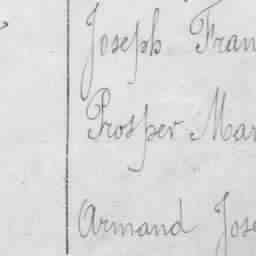 Joseph Fran
Prosper Mar
Armand Jose